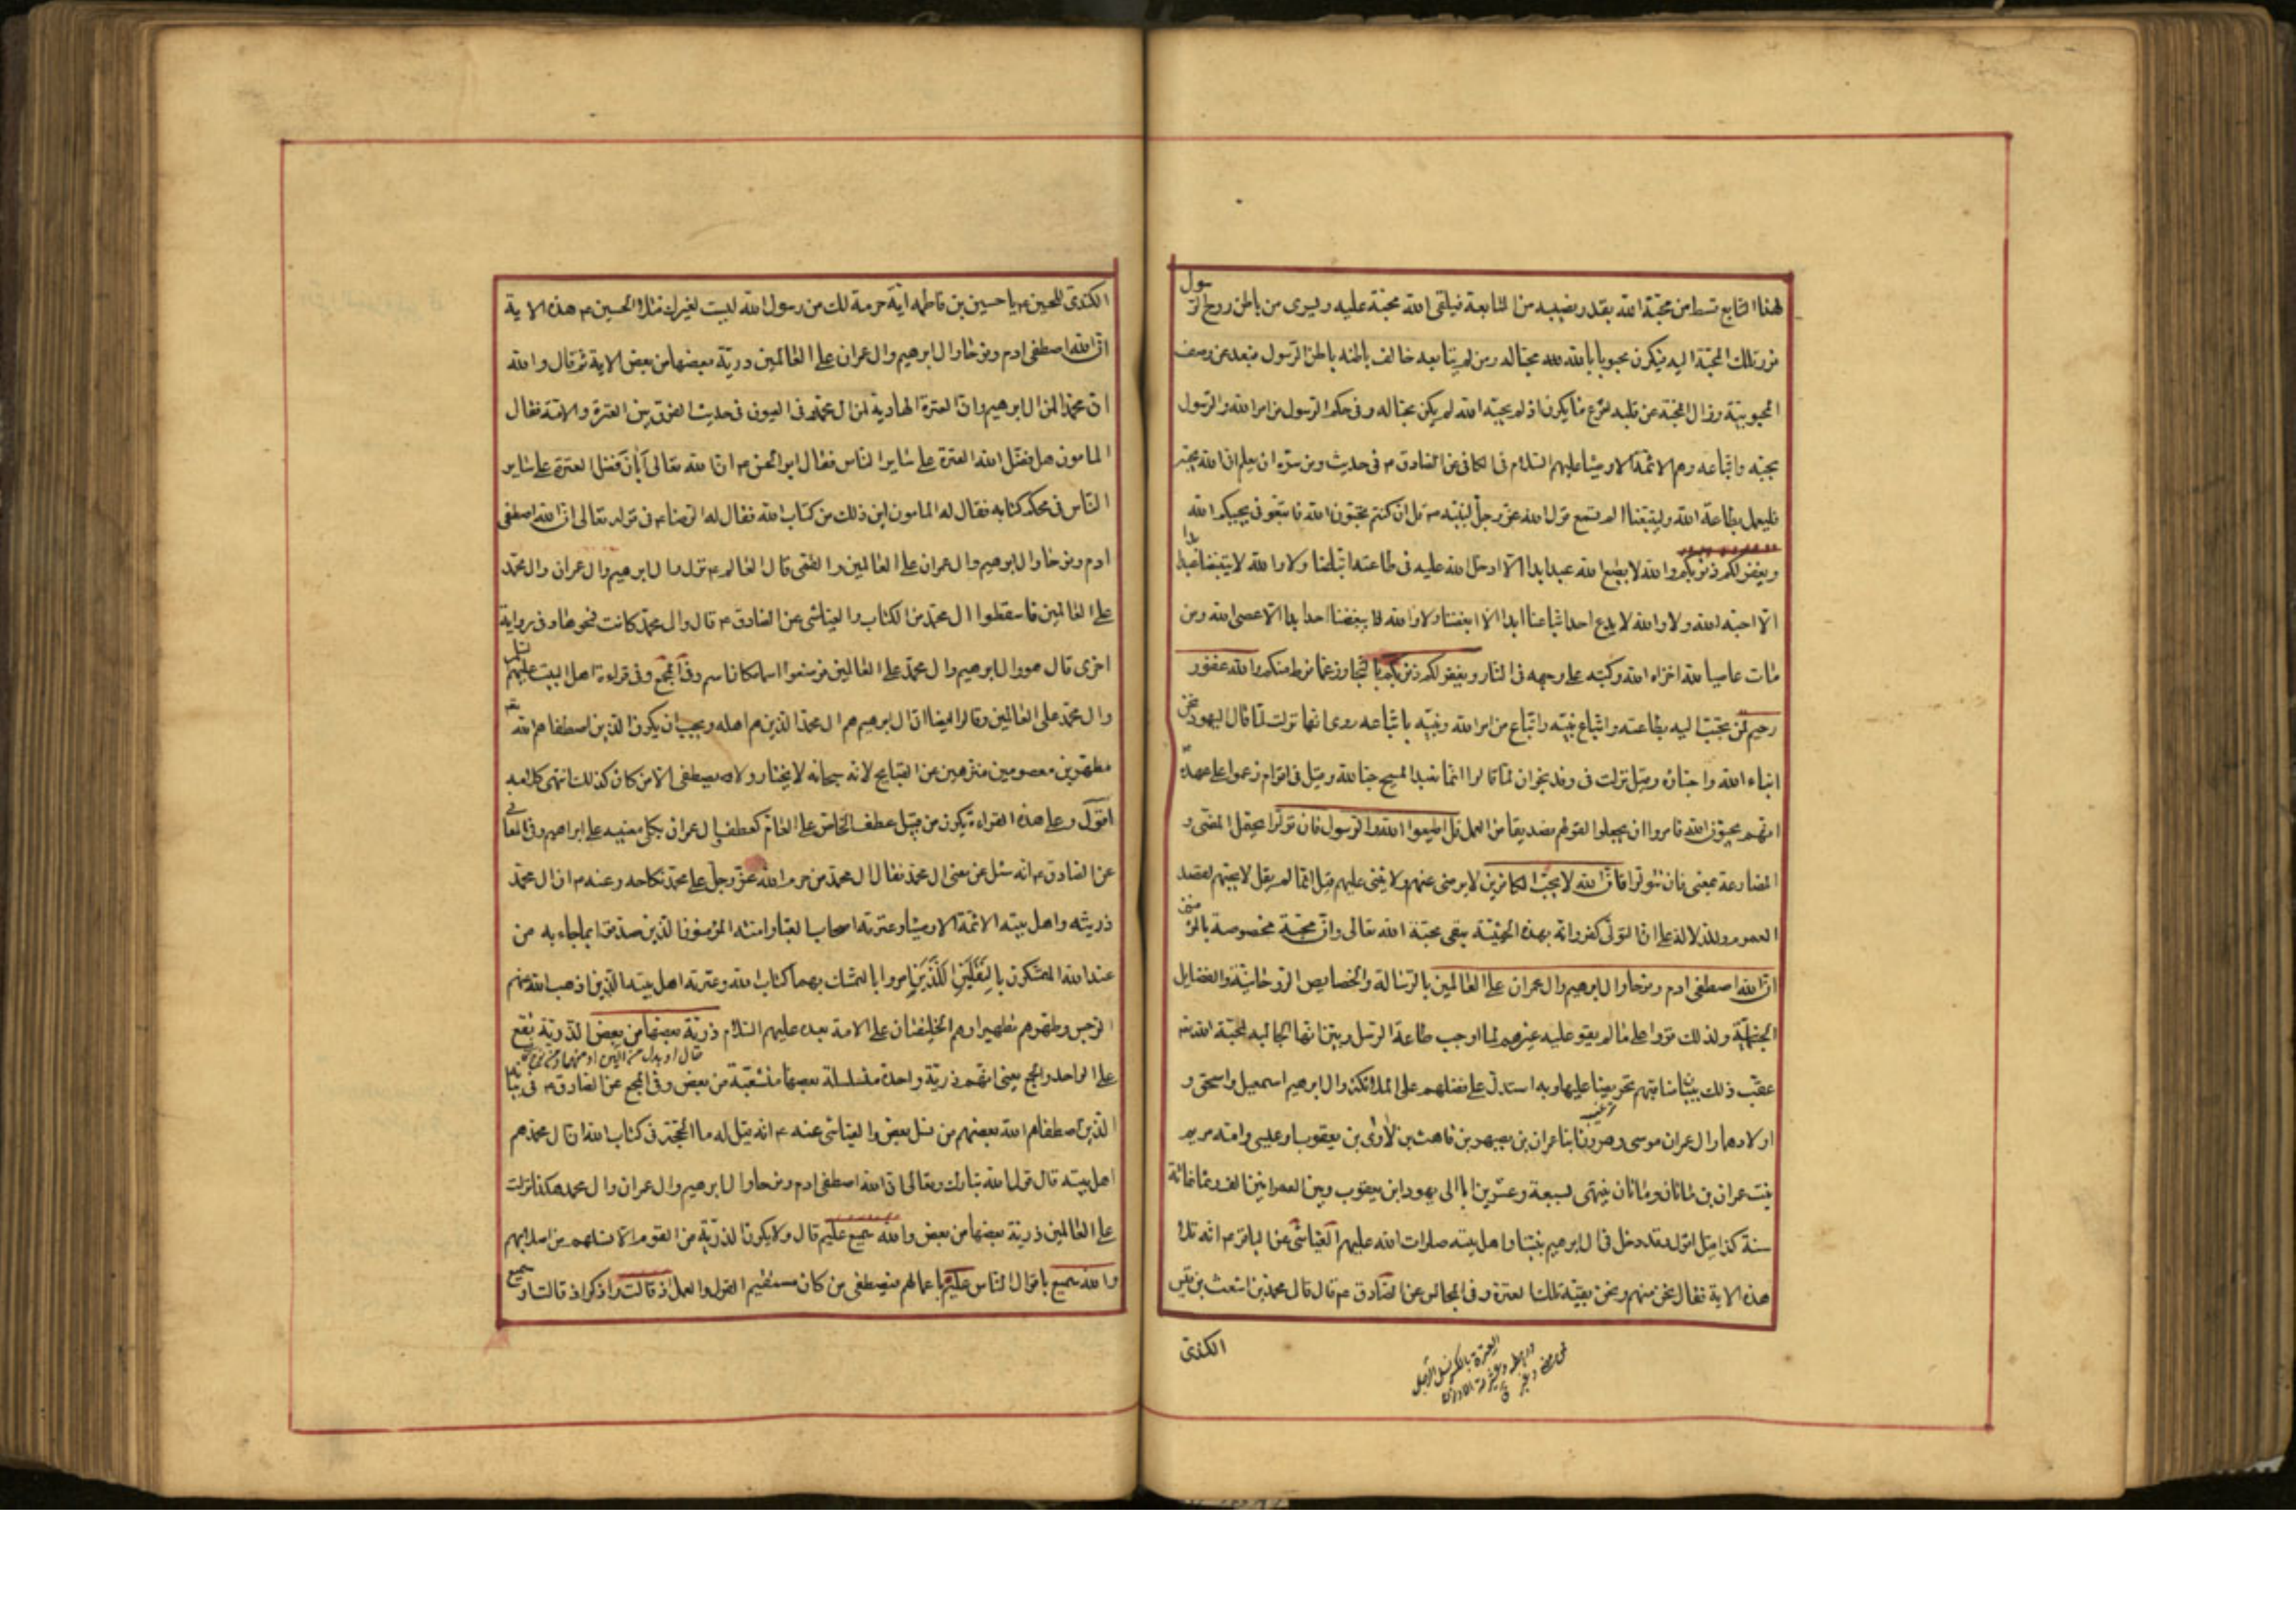 لهذا التابع قسط من محبة الله بقدر نصيبه من المتابعة فيلقى الله محبته عليه ويسرى من باطن روح الرسول
نور تلك المحبة اليه فيكون محبوبا بالله لله محبا له ومن لم يتابعه خالف باطنه باطن الرسول فبعد عن وصف
المحبوبية وزال المحبة عن قلبه اسرع ما يكون اذ لو لم يحبه الله لم يكن محبا له وفى حكم الرسول من امر الله والرسول
بحبه واتباعه وهم الائمة الاوصياء عليهم السلام فى الكافى عن الصادق ع فى حديث ومن سره ان يعلم ان الله يحبه
فليعمل بطاعة الله وليتبعنا الم تسمع قول الله عز وجل لنبيه ص قل ان كنتم تحبون الله فاتبعونى يحببكم الله
ويغفر لكم ذنوبكم والله لا يطيع الله عبد ابدا الا ادخل الله عليه فى طاعته اتباعنا ولا والله لا يتبعنا عبد ابدا
الا احبه الله ولا والله لا يدع احد اتباعنا ابدا الا ابغضنا ولا والله لا يبغضنا احد ابدا الا عصى الله ومن
مات عاصيا لله اخزاه الله وكبه على وجهه فى النار ويغفر لكم ذنوبكم بالتجاوز عما فرط منكم والله غفور
رحيم لمن تحبب اليه بطاعته واتباع نبيه واتباع من امر الله ونبيه باتباعه روى انها نزلت لما قال اليهود نحن
ابناء الله واحباؤه وقيل نزلت فى وفد نجران لما قالوا انما نعبد المسيح حبا لله وقيل فى اقوام زعموا على عهده ص
انهم يحبون الله فامروا ان يجعلوا لقولهم تصديقا من العمل قل اطيعوا الله والرسول فان تولوا يحتمل المضى و
المضارعة بمعنى فان تتولوا فان الله لا يحب الكافرين لا يرضى عنهم ولا يثنى عليهم قيل انما لم يقل لا يحبهم لقصد
العموم والدلالة على ان التولى كفر وانه بهذه الحيثية ينفى محبة الله تعالى وان محبته مخصوصة بالمؤمنين
ان الله اصطفى ادم ونوحا وال ابرهيم وال عمران على العالمين بالرسالة والخصايص الروحانية والفضايل
الجسمانية ولذلك قووا على ما لم يقو عليه غيرهم لما اوجب طاعة الرسل وبين انها الجالبة لمحبة الله
عقب ذلك ببيان مناقبهم تحريضا عليها وبه استدل على فضلهم على الملائكة وال ابرهيم اسمعيل واسحق و
اولادهما وال عمران موسى وهرون ابنا عمران بن يصهر بن قاهث بن لاوى بن يعقوب او عيسى وامه مريم
بنت عمران بن ماثان وماثان ينتهى بسبعة وعشرين ابا الى يهودا بن يعقوب وبين العمرانين الف وثمانمائة
سنة كذا قيل اقول وقد دخل فى ال ابرهيم نبينا واهل بيته صلوات الله عليهم العياشى عن الباقر ع انه تلا
هذه الاية فقال نحن منهم ونحن بقية تلك العترة وفى المجالس عن الصادق ع قال قال محمد بن اشعث بن قيس
العترة بالكسر نسل الرجل
الكندى
الكندى للحسين ع يا حسين بن فاطمه اية حرمة لك من رسول الله ليست لغيرك فتلا الحسين ع هذه الاية
ان الله اصطفى ادم ونوحا وال ابرهيم وال عمران على العالمين ذرية بعضها من بعض الاية ثم قال والله
ان محمدا لمن ال ابرهيم وان العترة الهادية لمن ال محمد وفى العيون فى حديث الفرق بين العترة والامة فقال
المامون هل فضل الله العترة على ساير الناس فقال ابو الحسن ع ان الله تعالى ابان فضل العترة على ساير
الناس فى محكم كتابه فقال له المامون اين ذلك من كتاب الله فقال له الرضا ع فى قوله تعالى ان الله اصطفى
ادم ونوحا وال ابرهيم وال عمران على العالمين والقمى قال العالم ع نزل وال ابرهيم وال عمران وال محمد
على العالمين فاسقطوا ال محمد من الكتاب والعياشى عن الصادق ع قال وال محمد كانت فمحوها وفى رواية
اخرى قال هو وال ابرهيم وال محمد على العالمين فوضعوا اسما مكان اسم وفى المجمع وفى قراءة اهل البيت عليهم السلام
وال محمد على العالمين وقالوا ايضا ان ال ابرهيم هم ال محمد الذين هم اهله ويجب ان يكون الذين اصطفاهم الله
مطهرين معصومين منزهين عن القبايح لانه سبحانه لا يختار ولا يصطفى الا من كان كذلك انتهى كلامه
اقول وعلى هذه القراءة يكون من قبيل عطف الخاص على العام كعطف ال عمران بكلى معنييه على ابراهيم وفى المعانى
عن الصادق ع انه سئل عن معنى ال محمد فقال ال محمد من حرم الله عز وجل على محمد نكاحه وعنه ع ان ال محمد
ذريته واهل بيته الائمة الاوصياء وعترته اصحاب العباء وامته المؤمنون الذين صدقوا بما جاء به من
عند الله المتمسكون بالثقلين اللذين امروا بالتمسك بهما كتاب الله وعترته اهل بيته الذين اذهب الله عنهم
الرجس وطهرهم تطهيرا وهم الخليفتان على الامة بعده عليهم السلام ذرية بعضها من بعض الذرية يقع
على الواحد والجمع يعنى انهم ذرية واحدة متسلسلة بعضها متشعبة من بعض وفى المجمع عن الصادق ع فى بيانه
الذين اصطفاهم الله بعضهم من نسل بعض والعياشى عنه ع انه قيل له ما الحجة فى كتاب الله ان ال محمد هم
اهل بيته قال قول الله تبارك وتعالى ان الله اصطفى ادم ونوحا وال ابرهيم وال عمران وال محمد هكذا نزلت
على العالمين ذرية بعضها من بعض والله سميع عليم قال ولا يكون الذرية من القوم الا نسلهم من اصلابهم
والله سميع باقوال الناس عليم باعمالهم فيصطفى من كان مستقيم القول والعمل اذ قالت واذكر اذ قالت او سميع